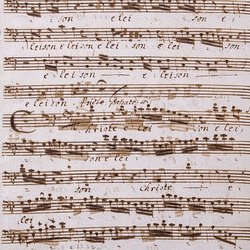 son e lei
eleison eleison e lei son e lei
e lei son e leison
e leison
Christe elei son e lei
son e lei
son Christe e
lei